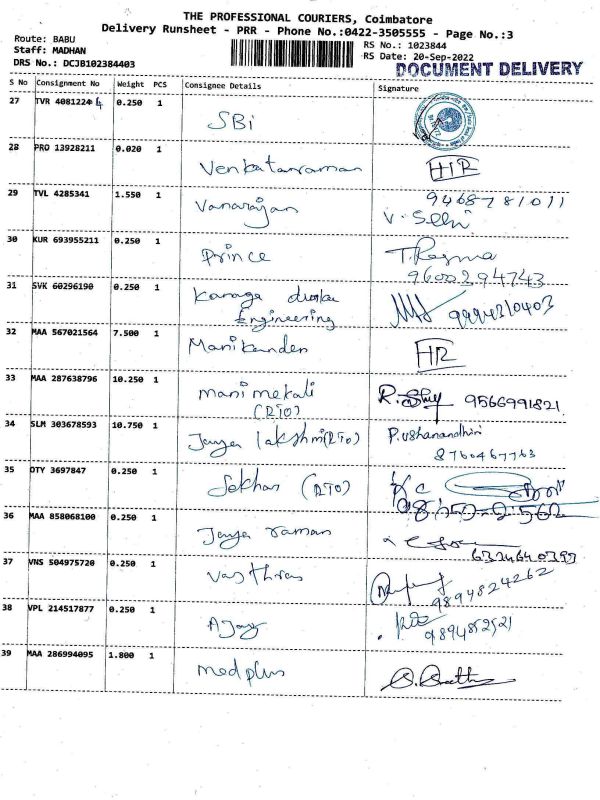 THE PROFESSIONAL COURIERS, Coimbatore
Delivery Runsheet - PRR - Phone No.:0422-3505555 - Page No.:3
Route: BABU
Staff: MADHAN
DRS No.: DCJB102384403
RS No.: 1023844
RS Date: 20-Sep-2022
DOCUMENT DELIVERY
S No Consignment No Weight PCS Consignee Details Signature
27 TVR 4081224 0.250 1 SBi
28 PRO 13928211 0.020 1 Venkatanraman HR
29 TVL 4285341 1.550 1 Vanarajan 9468781011
V. Selvi
30 KUR 693955211 0.250 1 Prince
9600294743
31 SVK 60296190 0.250 1
Engineering 9994310403
32 MAA 567021564 7.500 1 Manikanden HR
33 MAA 287638796 10.250 1 Manimekali 9566991821
(RTO)
34 SLM 303678593 10.750 1 Jaya lakshmi(RTO) P.ushanandhini
8760467763
35 OTY 3697847 0.250 1 Sekhar (RTO)
36 MAA 858068100 0.250 1 Jaya raman
37 VNS 504975720 0.250 1 Vasthras
9894824262
38 VPL 214517877 0.250 1 Ajay
39 MAA 286994095 1.800 1 medplus